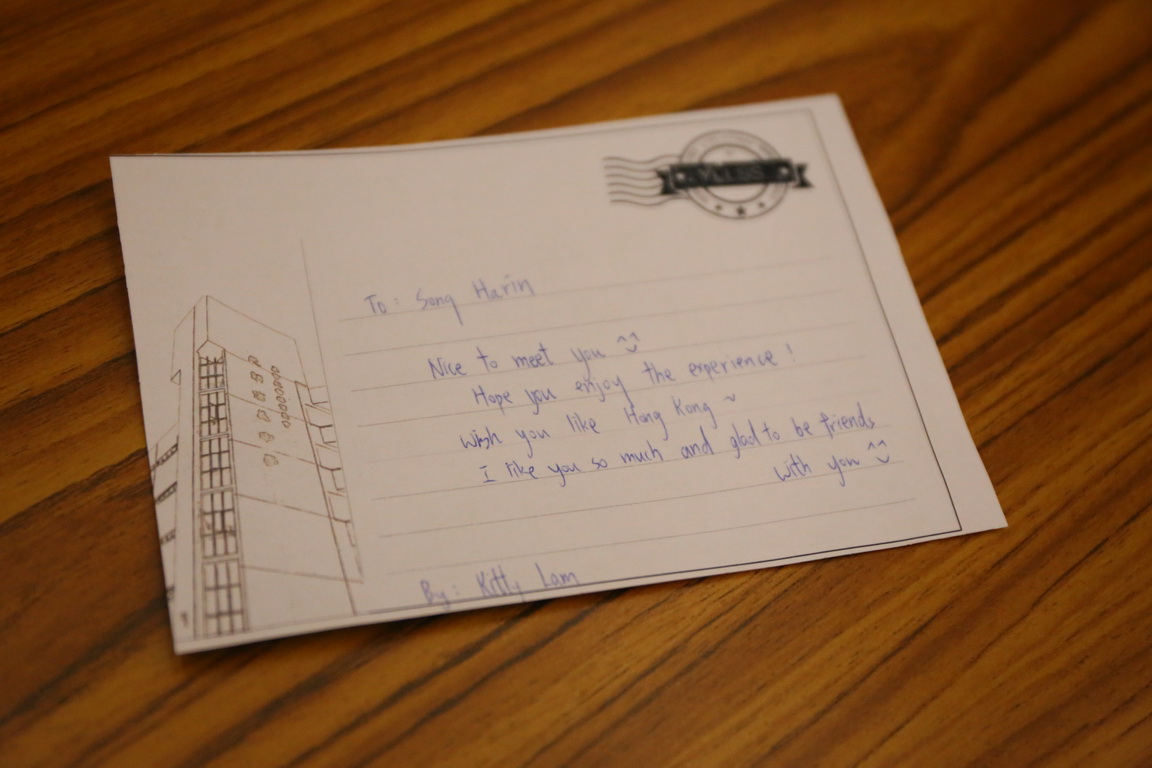 To: Song Harin
Nice to meet you ^^
Hope you enjoy the experience!
Wish you like Hong Kong ~
I like you so much and glad to be friends
with you ^^
By: Kitty Lam